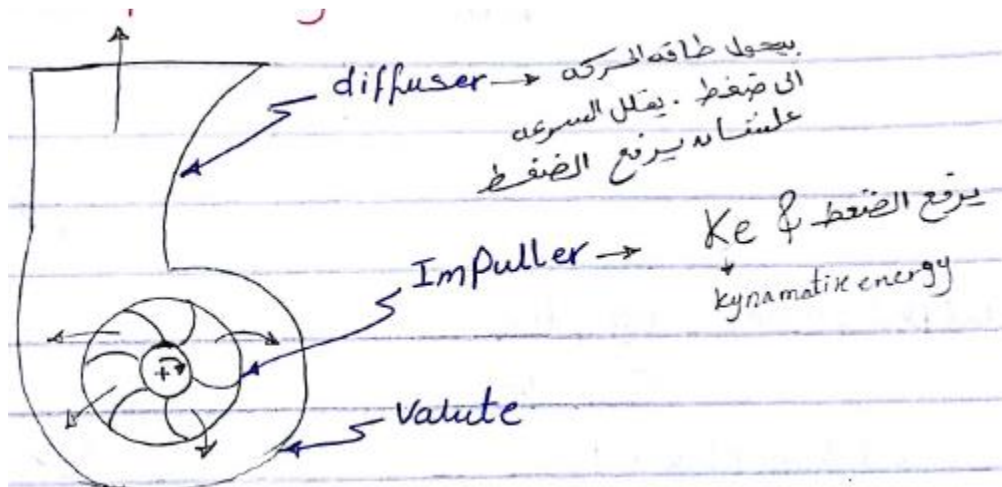 diffuser → بيحول طاقه الحركه
الى ضغط . يقلل السرعه
علشان يرفع الضغط
Impuller → Ke & يرفع الضغط
kynamatix energy
+
valute